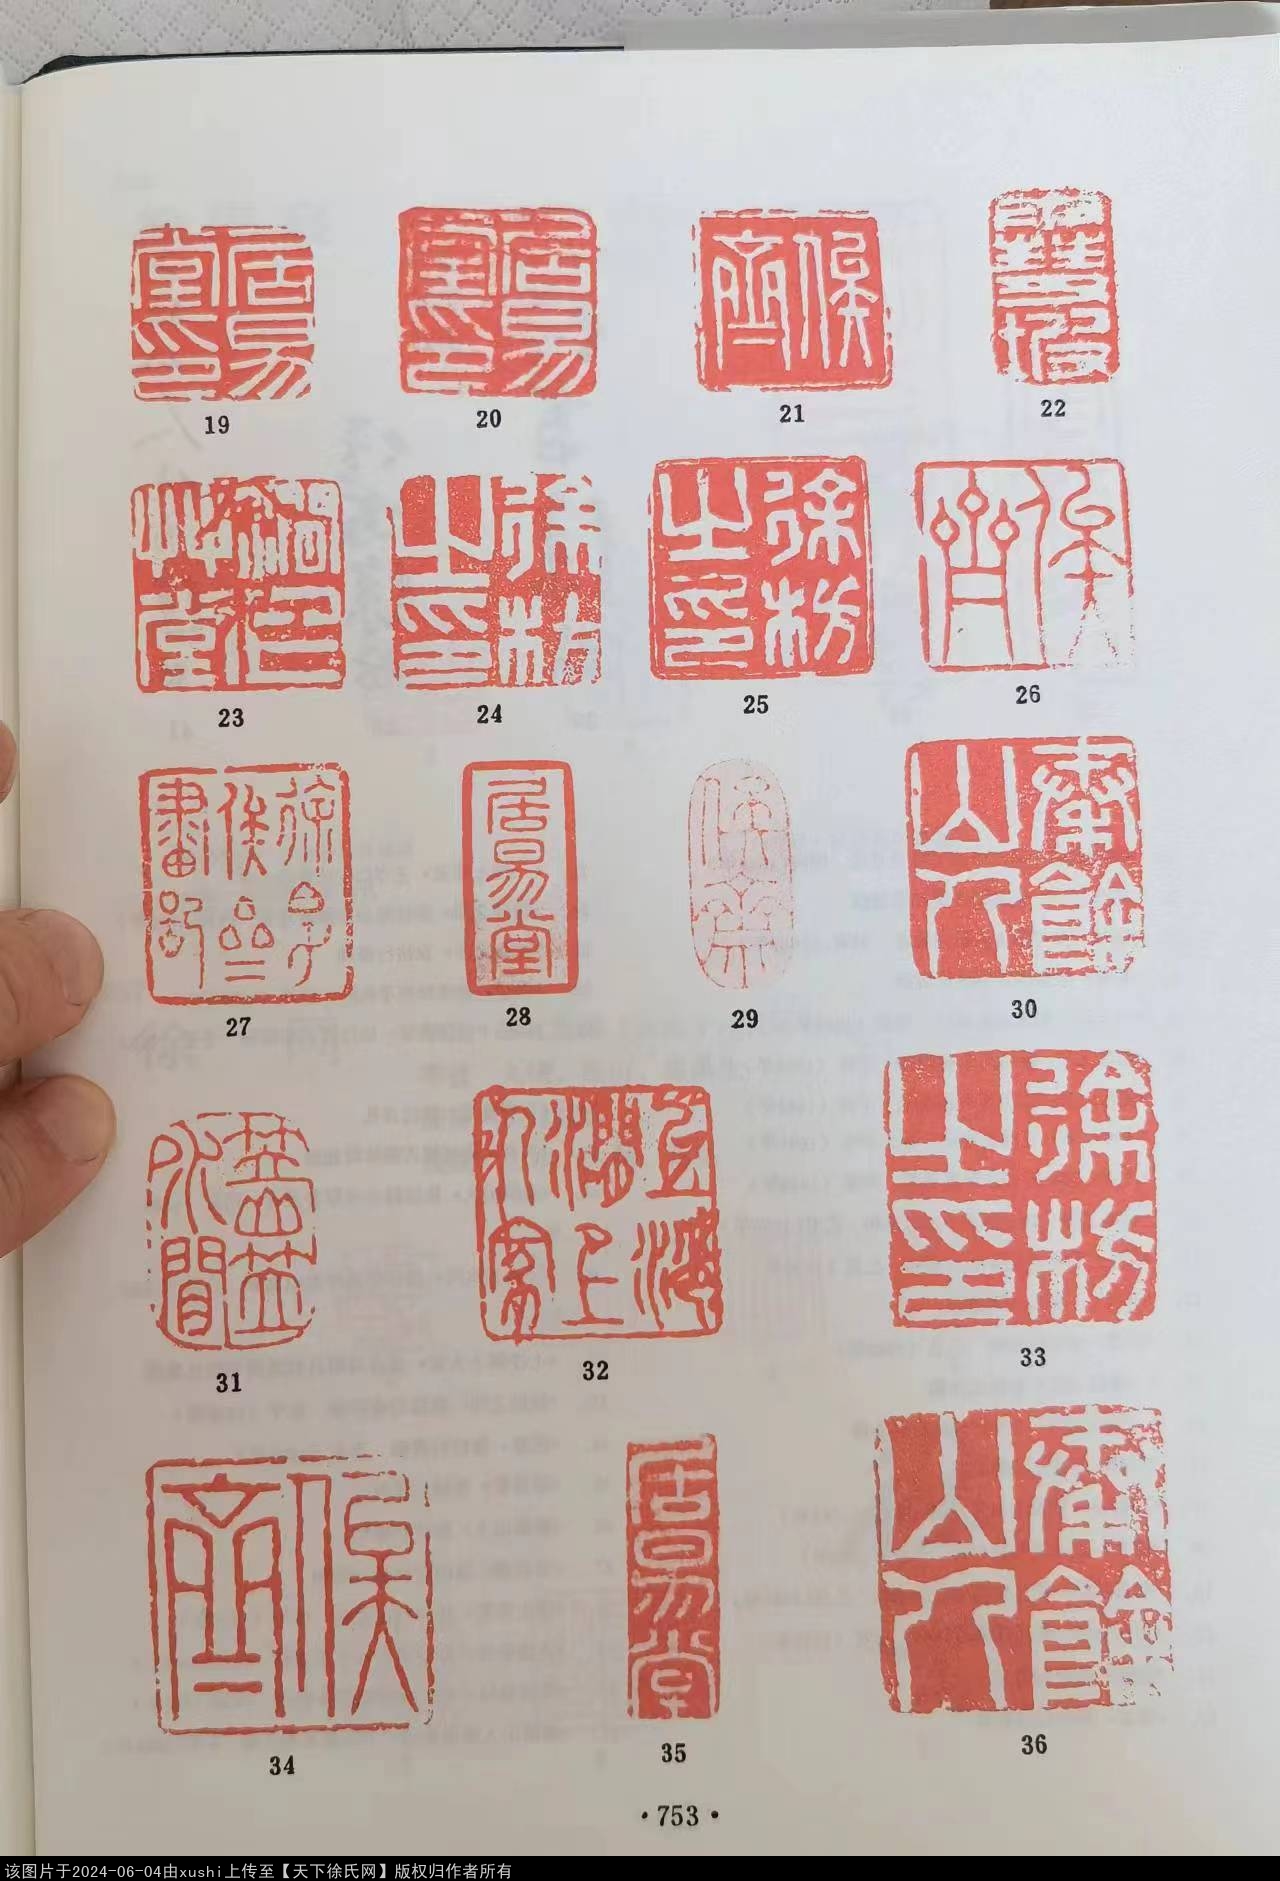 居易堂印
19
居易堂印
20
俟齊
21
22
澗上艸堂
23
徐枋之印
24
徐枋之印
25
俟齊
26
徐子俟齋畫記
27
居易堂
28
俟齊
29
秦餘山人
30
31
32
徐枋之印
33
俟齊
34
居易堂
35
秦餘山人
36
·753·
该图片于2024-06-04由xushi上传至【天下徐氏网】版权归作者所有